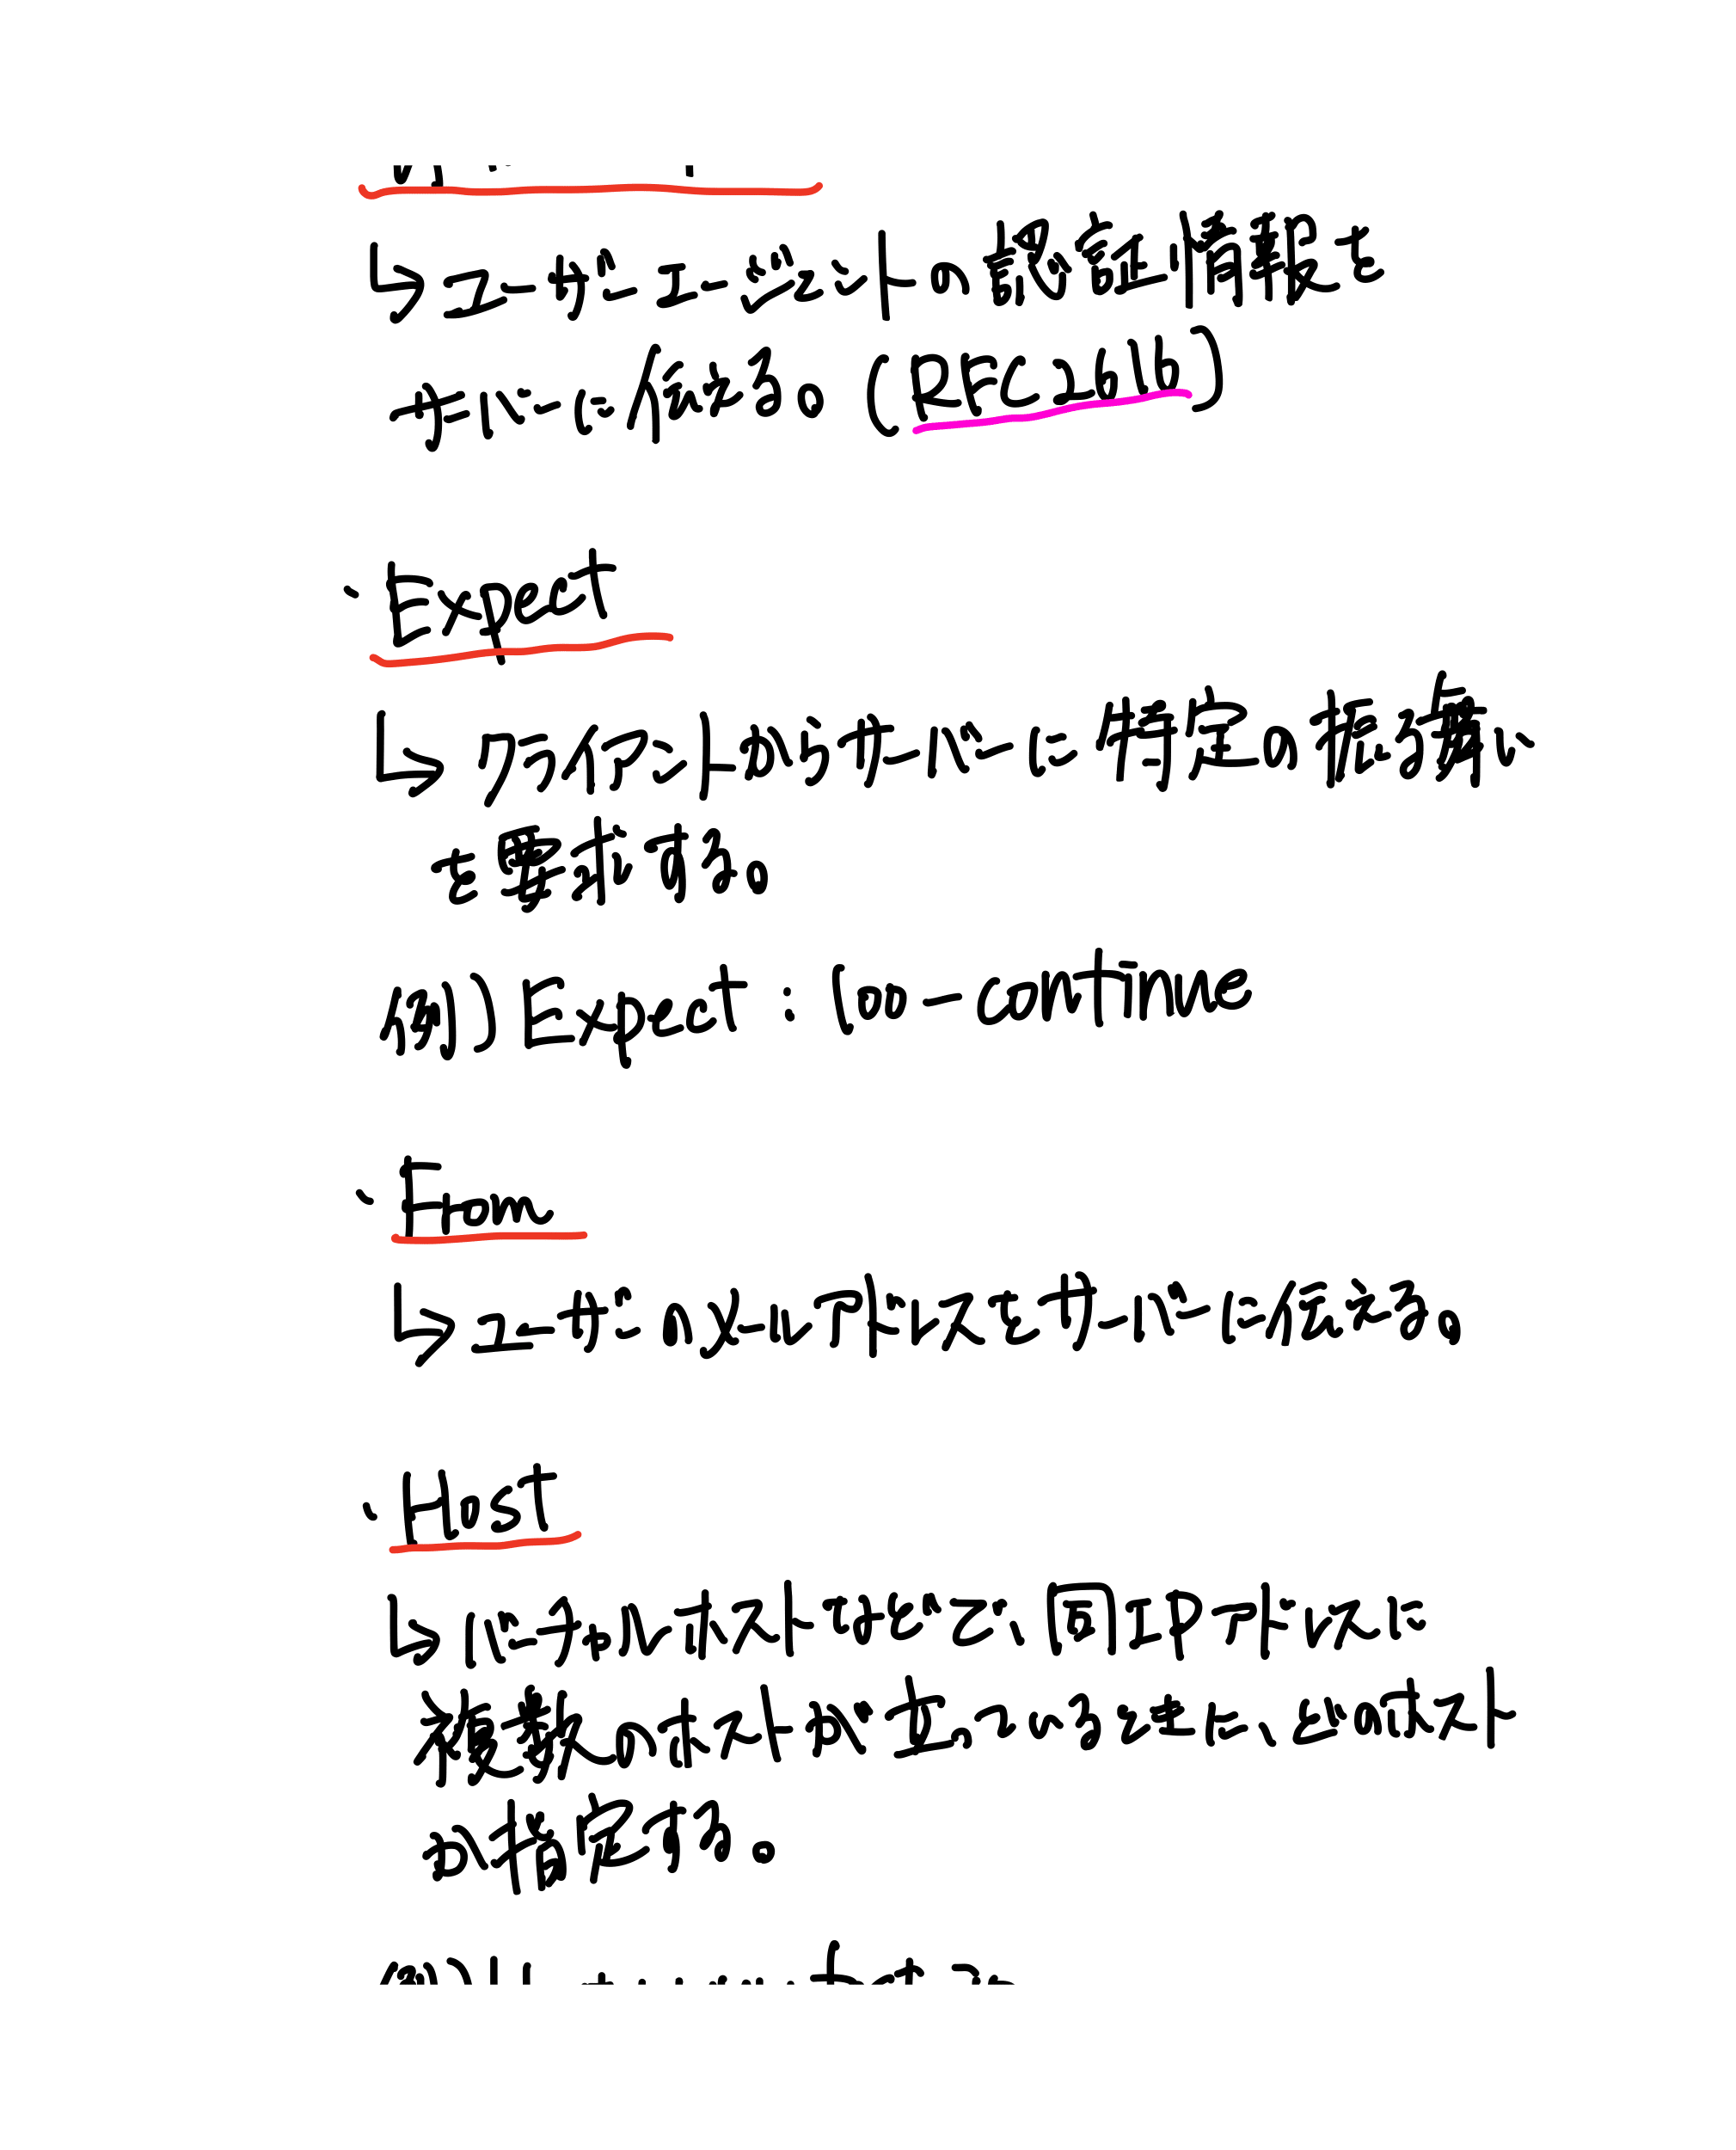 ↳ユーザーエージェントの認証情報を
サーバーに伝える。(RFC2616)
・Expect
↳クライアントがサーバーに特定の振る舞い
を要求する。
例)Expect:100-continue
・From
↳ユーザのメールアドレスをサーバーに伝える。
・Host
↳バーチャルホストなどで、同IPアドレスに
複数のホストが立っているときに、どのホスト
か指定する。